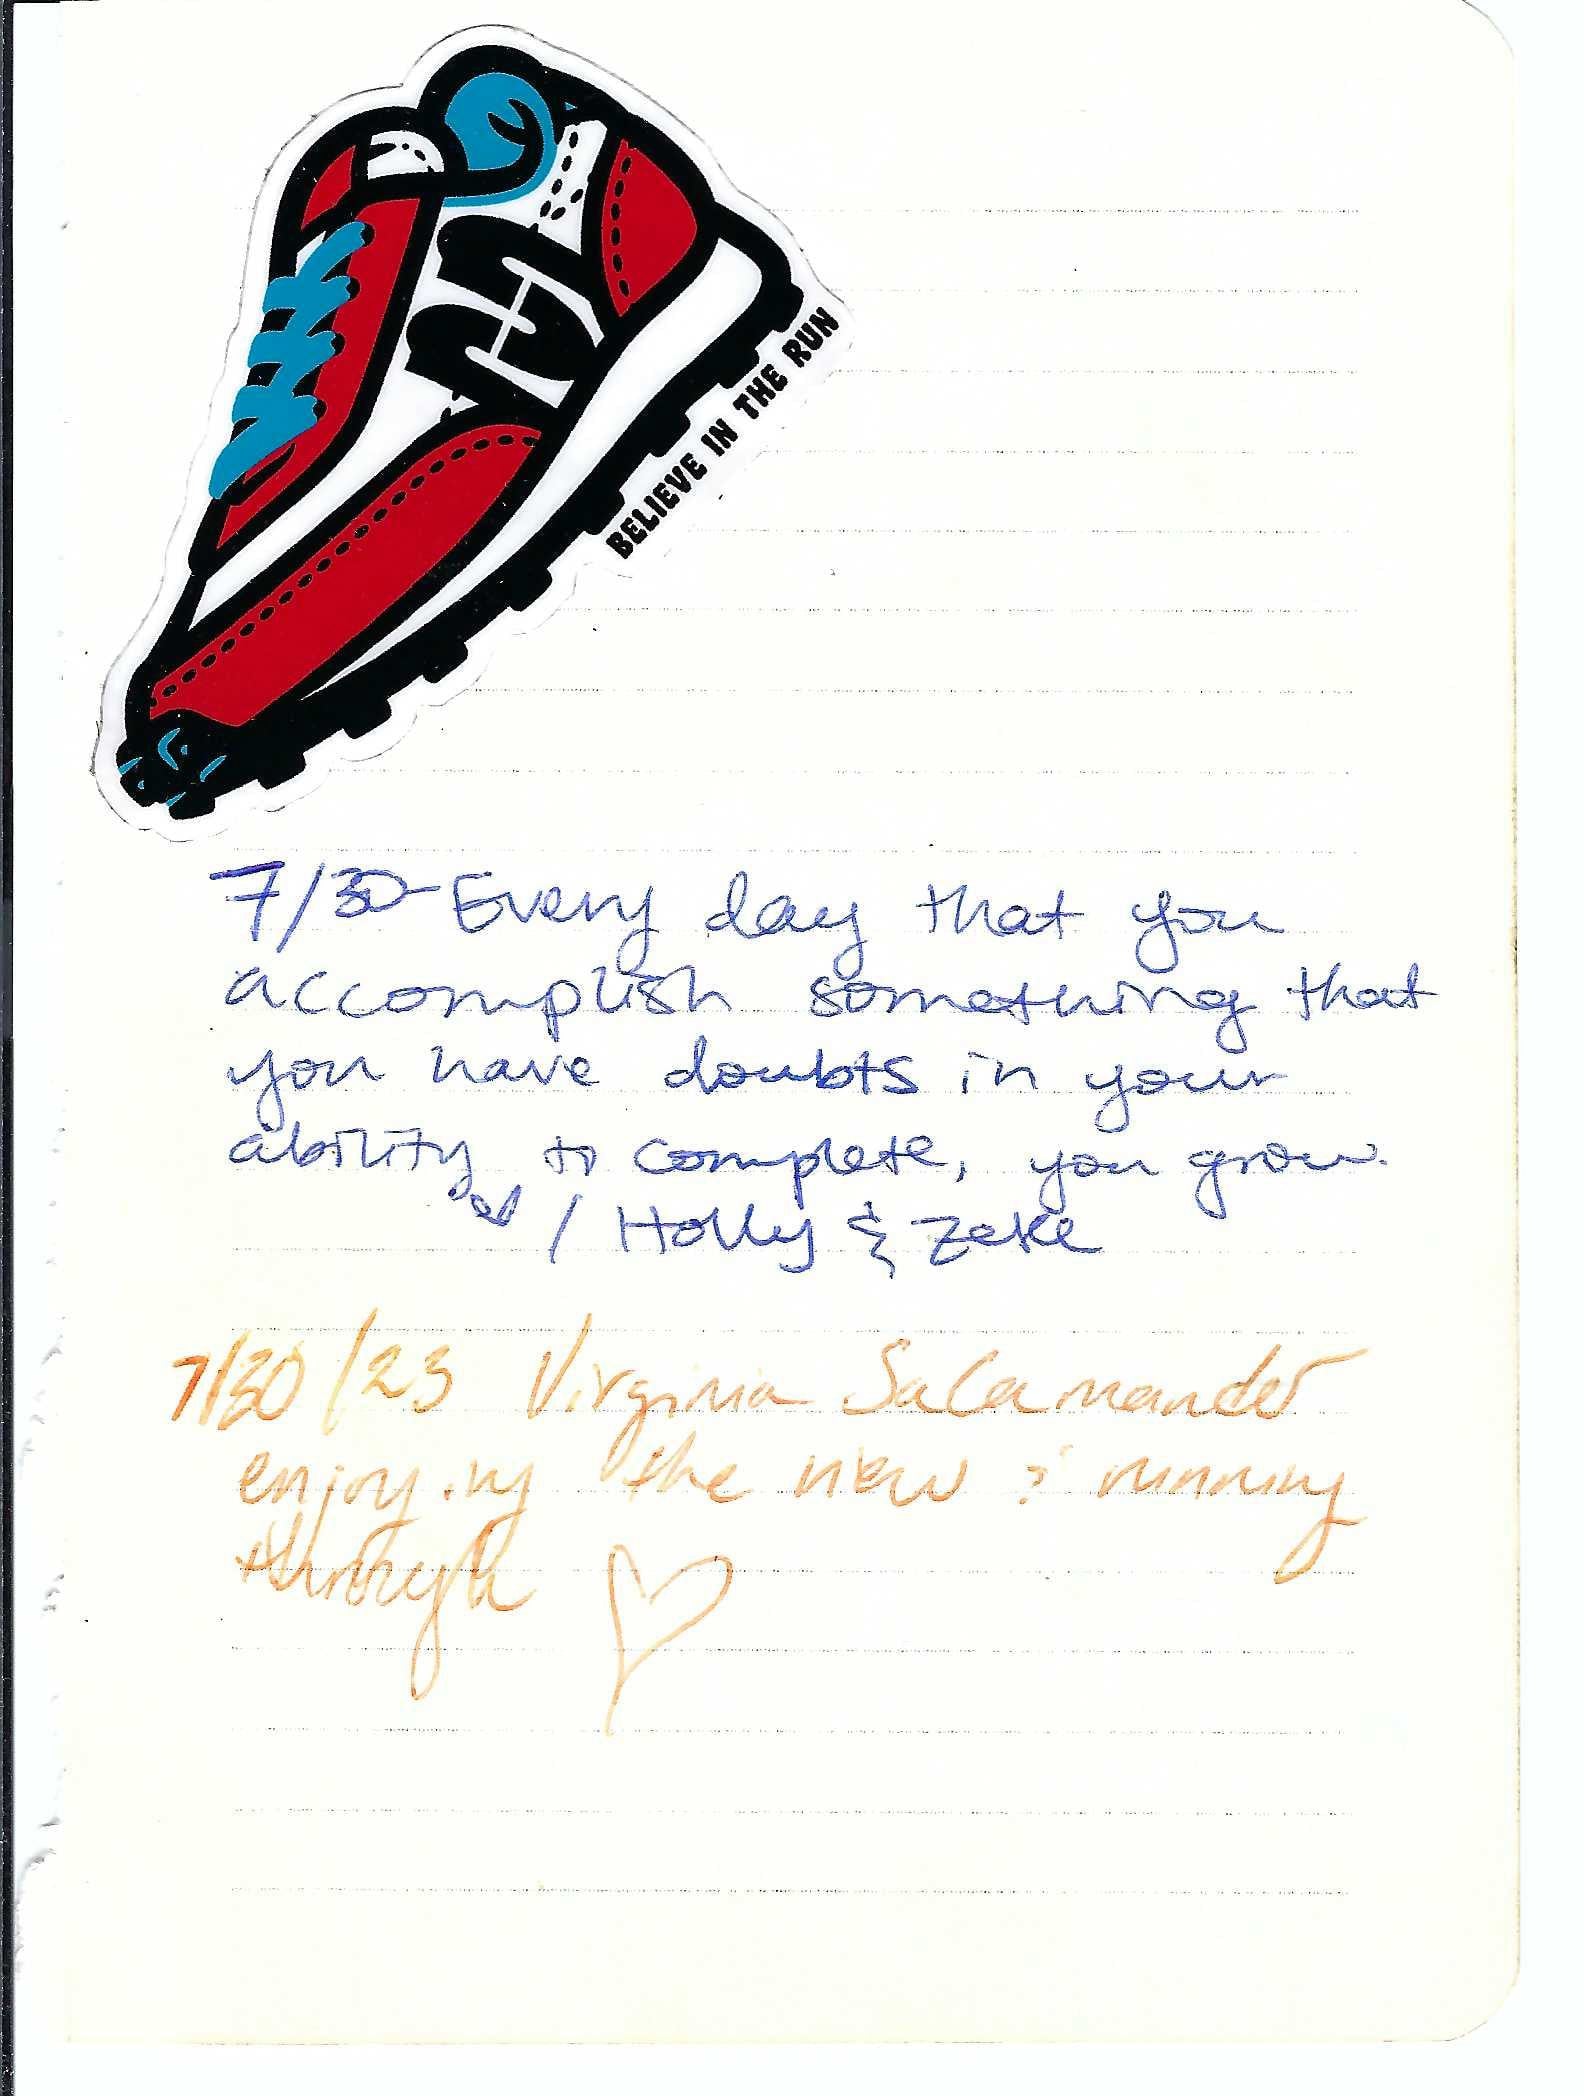 BELIEVE IN THE RUN
7/30 - Every day that you
accomplish something that
you have doubts in your
ability to complete, you grow.
/ Holly & Zeke
7/30/23 Virginia Salamander
enjoying the view & running
through ♡